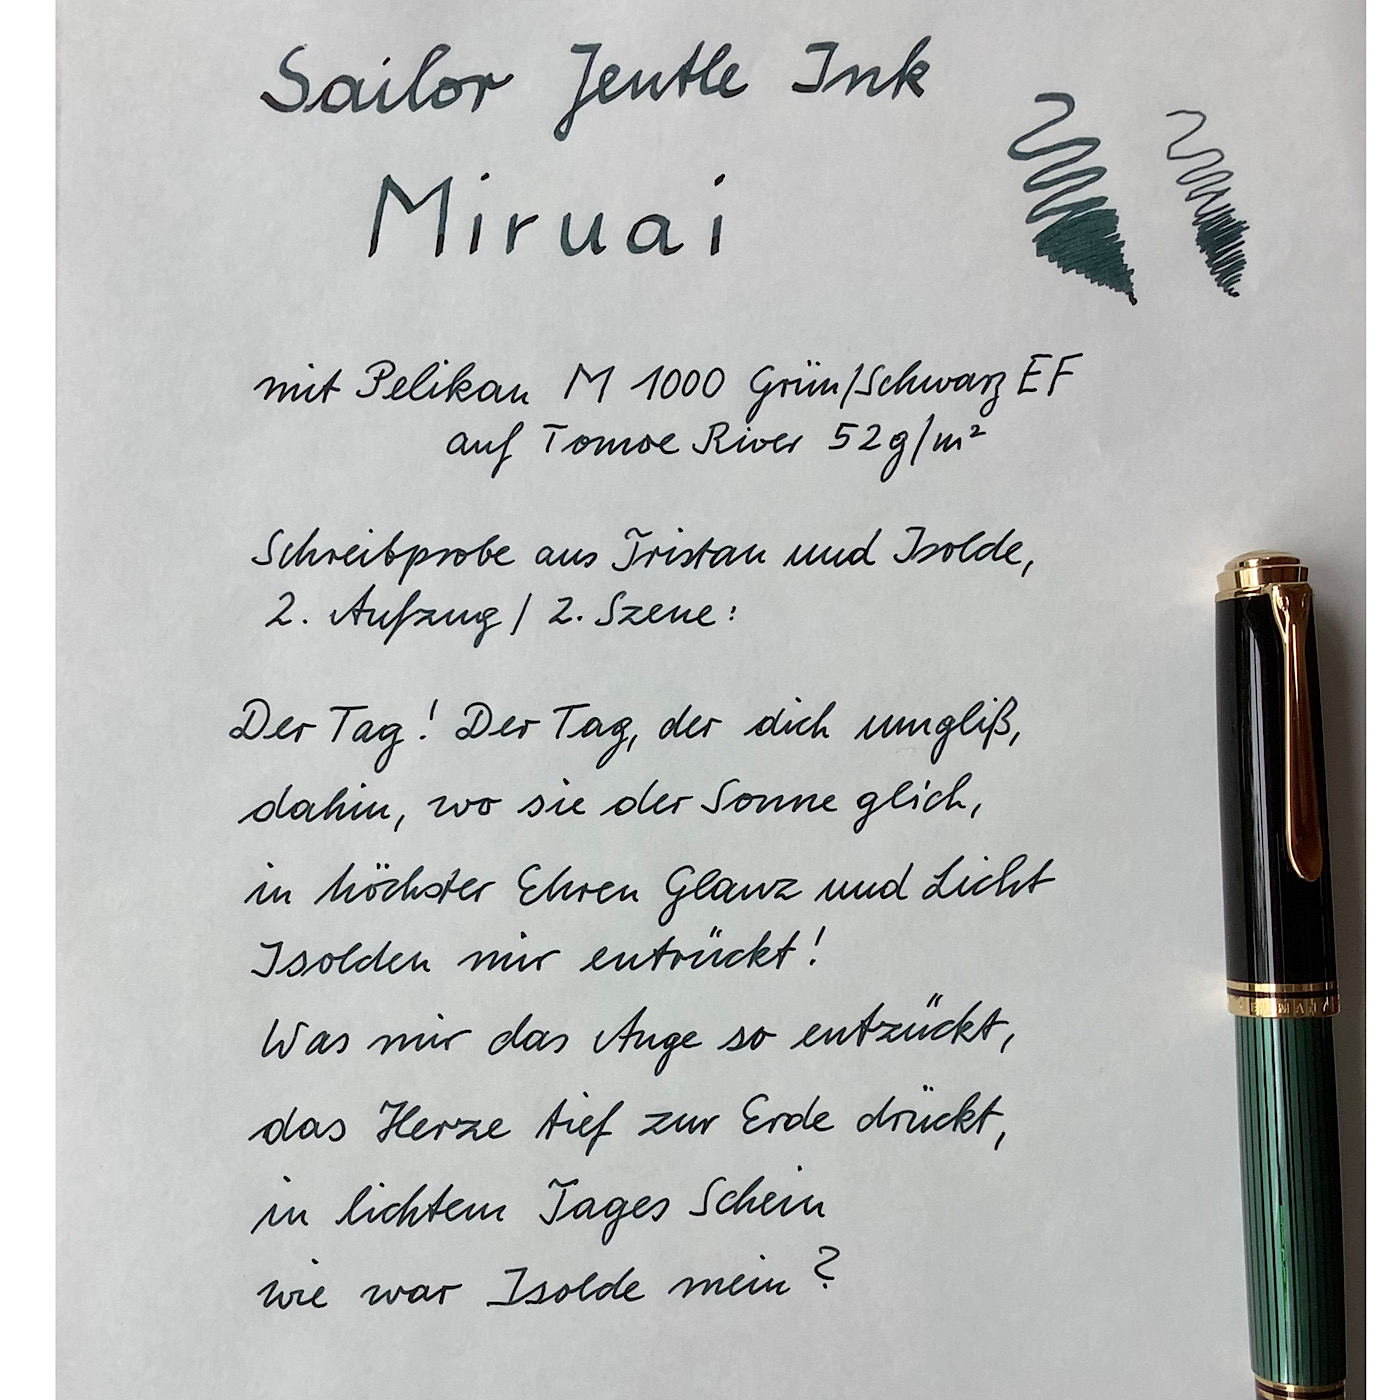 Sailor Jentle Ink
Miruai
mit Pelikan M 1000 Grün/Schwarz EF
auf Tomoe River 52g/m²
Schreibprobe aus Tristan und Isolde,
2. Aufzug / 2. Szene:
Der Tag! Der Tag, der dich umgliß,
dahin, wo sie der Sonne glich,
in höchster Ehren Glanz und Licht
Isolden mir entrückt!
Was mir das Auge so entzückt,
das Herze tief zur Erde drückt,
in lichtem Tages Schein
wie war Isolde mein?